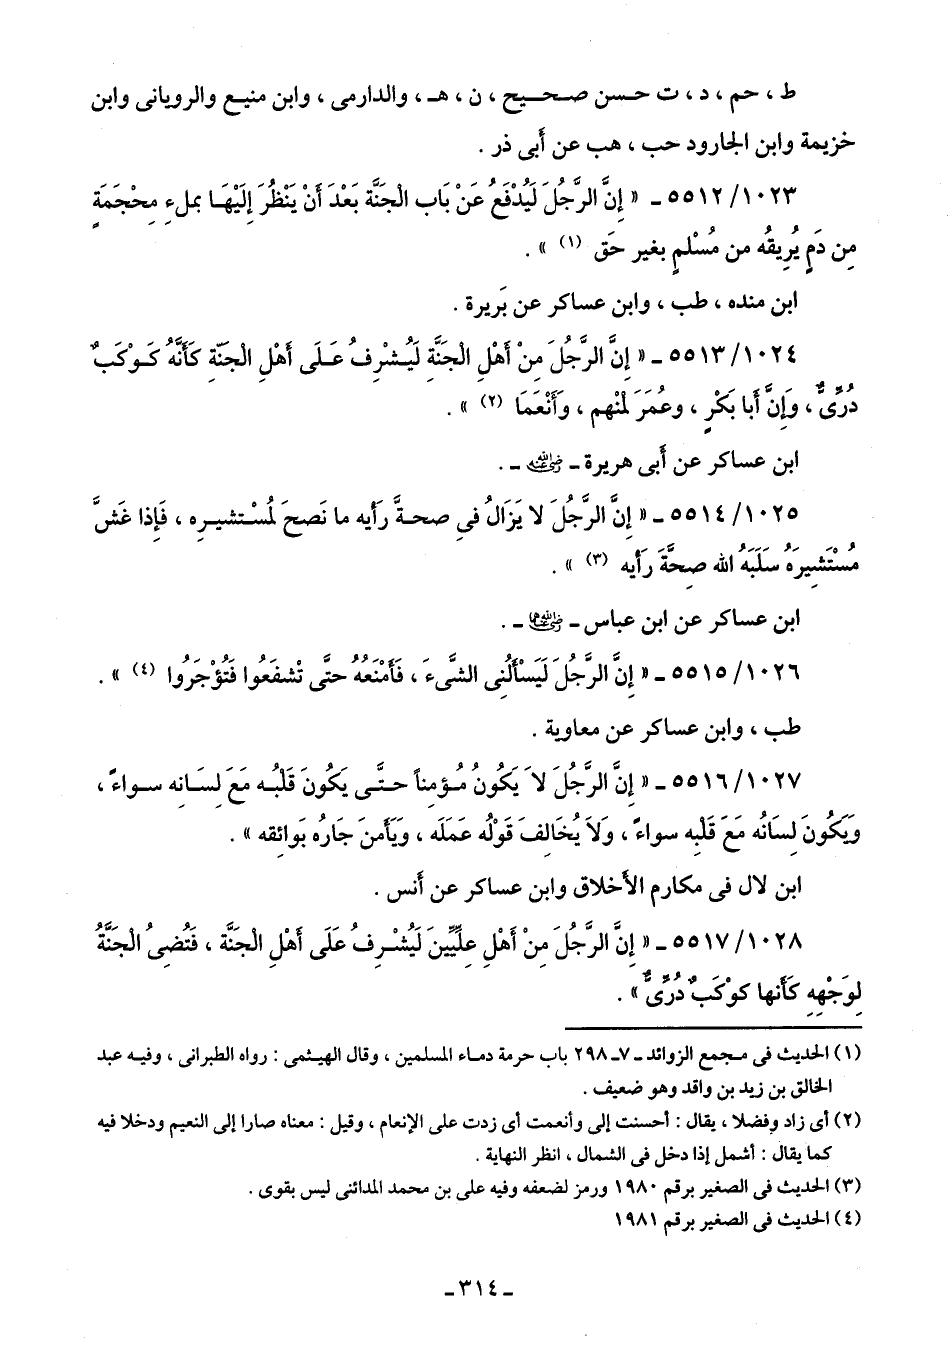 ط ، حم ، د ، ت حسن صحيح ، ن ، هـ ، والدارمى ، وابن منيع والرويانى وابن
خزيمة وابن الجارود حب ، هب عن أبى ذر .
٥٥١٢/١٠٢٣ - « إِنَّ الرَّجُلَ لَيُدْفَعُ عَنْ بَابِ الْجَنَّةِ بَعْدَ أَنْ يَنْظُرَ إِلَيْهَا بملءِ مِحْجَمَةٍ
مِن دَمٍ يُرِيقُه من مُسْلمٍ بغير حَق (١) » .
ابن منده ، طب ، وابن عساكر عن بَريرة .
٥٥١٣/١٠٢٤ - « إِنَّ الرَّجُلَ مِنْ أَهْلِ الْجَنَّةِ لَيُشْرِفُ عَلَى أَهْلِ الْجَنّةِ كَأَنَّهُ كَوْكَبٌ
دُرِّىٌّ ، وَإِنَّ أَبا بَكْرٍ ، وعُمَرَ لَمِنْهم ، وَأَنْعَمَا (٢) » .
ابن عساكر عن أَبى هريرة - رضي الله عنه - .
٥٥١٤/١٠٢٥ - « إِنَّ الرَّجُلَ لا يَزَالُ فى صحةِ رَأيه ما نَصحَ لمُسْتشيره ، فَإِذا غَشَّ
مُسْتَشِيرَهُ سَلَبَهُ الله صِحَّةَ رَأيه (٣) » .
ابن عساكر عن ابن عباس - رضي الله عنهما - .
٥٥١٥/١٠٢٦ - « إِنَّ الرَّجُلَ لَيَسْأَلُنِى الشَّىءَ ، فَأَمْنَعُهُ حتَّى تشْفَعُوا فَتُؤْجَرُوا (٤) » .
طب ، وابن عساكر عن معاوية .
٥٥١٦/١٠٢٧ - « إِنَّ الرَّجُلَ لاَ يَكُونُ مُؤمِناً حتَّى يَكُونَ قَلْبُه مَعَ لِسَانه سواءً ،
وَيَكُونَ لِسَانُه مَعَ قَلْبِه سواءً ، وَلاَ يُخَالِفَ قَوْلُه عَمَلَه ، وَيَأمنَ جَارُه بَوائقه » .
ابن لال فى مكارم الأخلاق وابن عساكر عن أَنس .
٥٥١٧/١٠٢٨ - « إِنَّ الرَّجُلَ مِنْ أَهْلِ عِلِّيِّينَ لَيُشْرِفُ عَلَى أَهْلِ الْجَنَّةِ ، فَتُضِئُ الْجَنَّةُ
لِوَجْهِهِ كَأَنها كوْكَبٌ دُرِّىٌّ » .
(١) الحديث فى مجمع الزوائد - ٧ - ٢٩٨ باب حرمة دماء المسلمين ، وقال الهيثمى : رواه الطبرانى ، وفيه عبد
الخالق بن زيد بن واقد وهو ضعيف .
(٢) أى زاد وفضلا ، يقال : أحسنت إلى وأنعمت أى زدت على الإنعام ، وقيل : معناه صارا إلى النعيم ودخلا فيه
كما يقال : أشمل إذا دخل فى الشمال ، انظر النهاية .
(٣) الحديث فى الصغير برقم ١٩٨٠ ورمز لضعفه وفيه على بن محمد المدائنى ليس بقوى .
(٤) الحديث فى الصغير برقم ١٩٨١
- ٣١٤ -